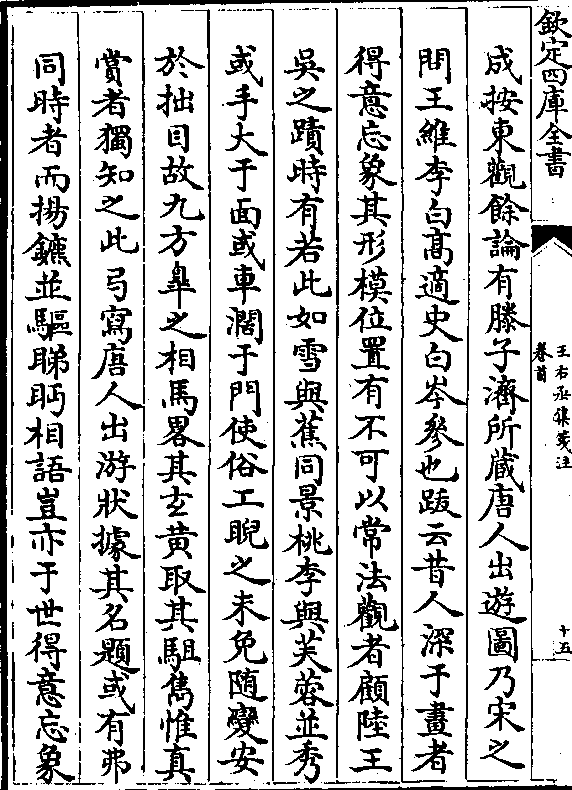 欽定四庫全書
王右丞集箋注
卷首
十五
成按東觀餘論有滕子濟所藏唐人出遊圖乃宋之
問王維李白高適史白岑參也跋云昔人深于畫者
得意忘象其形模位置有不可以常法觀者顧陸王
吳之蹟時有若此如雪與蕉同景桃李與芙蓉並秀
或手大于面或車濶于門使俗工睨之未免随變安
於拙目故九方臯之相馬畧其玄黄取其駔雋惟真
賞者獨知之此弓寫唐人出游狀據其名題或有弗
同時者而揚鑣並驅睇眄相語豈亦于世得意忘象